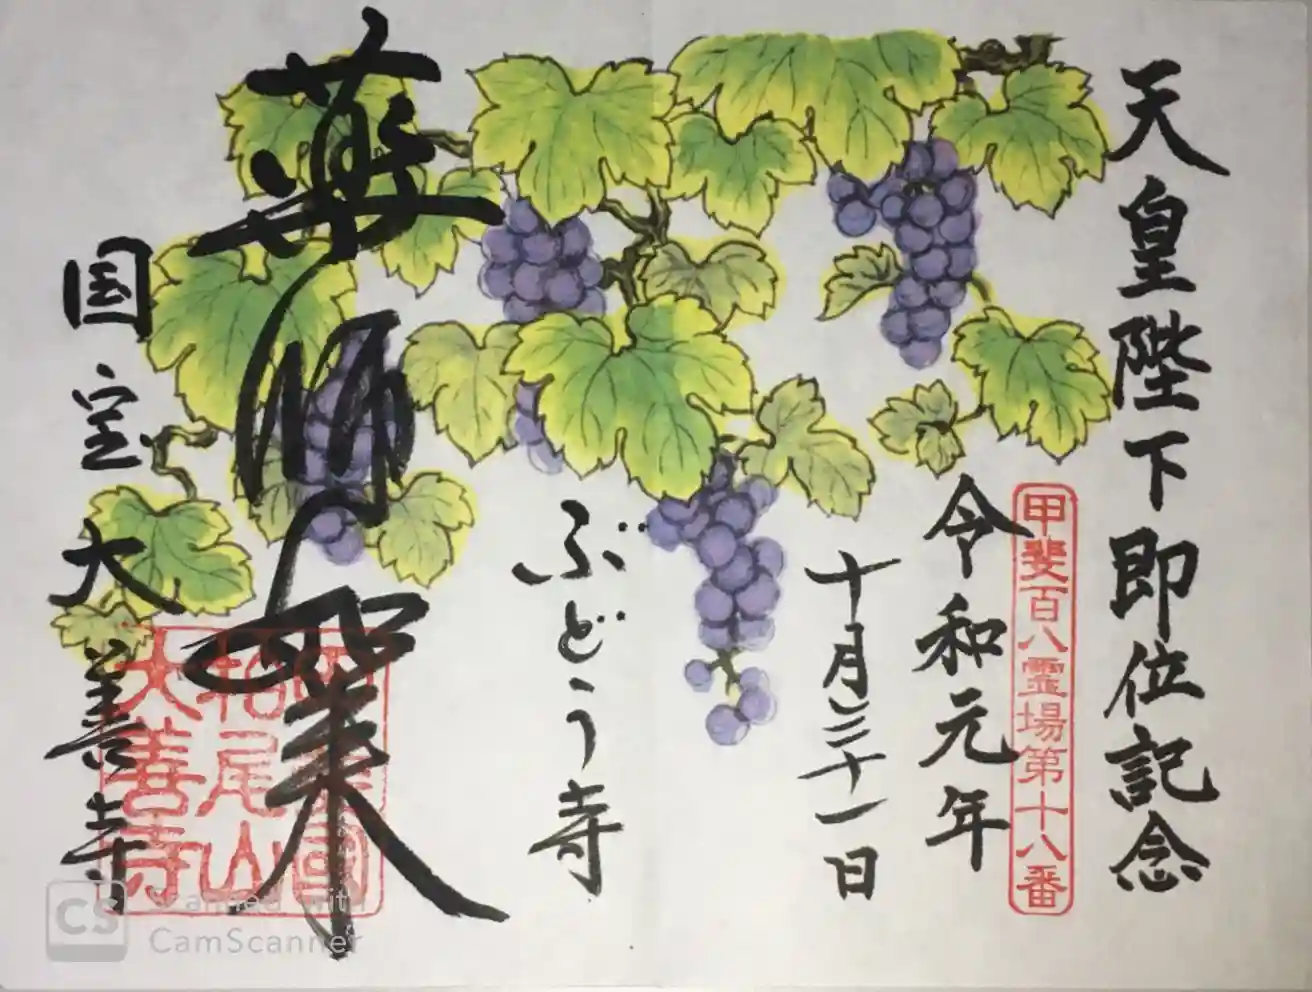 天皇陛下即位記念
甲斐百八霊場第十八番
令和元年
十月三十一日
ぶどう寺
薬師如来
国宝大善寺
柏尾山
大善寺
CS
Scanned with
CamScanner